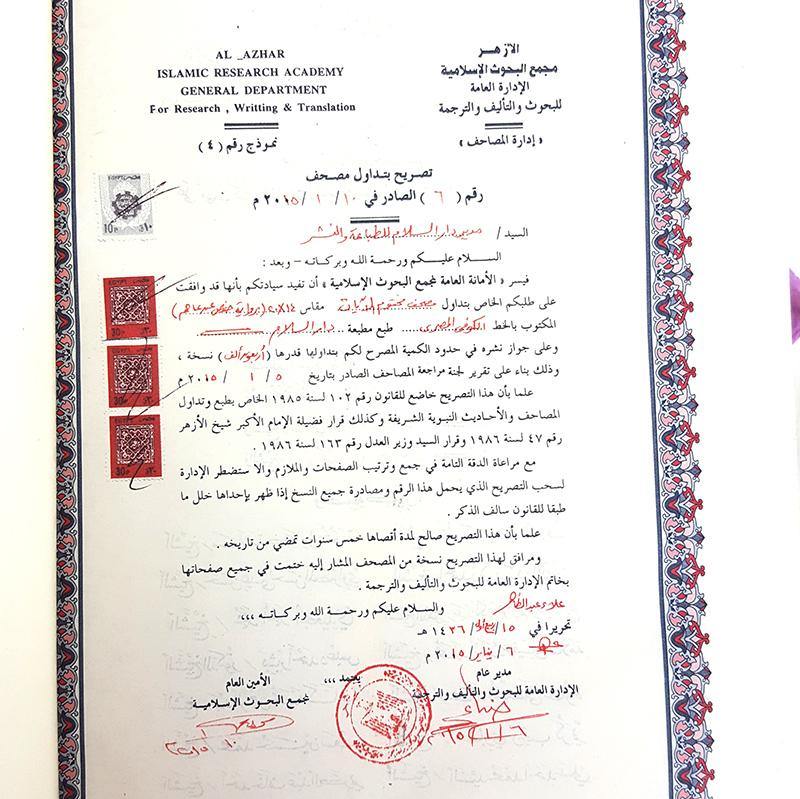 AL _AZHAR
ISLAMIC RESEARCH ACADEMY
GENERAL DEPARTMENT
For Research , Writting & Translation
الأزهر
مجمع البحوث الإسلامية
الإدارة العامة
للبحوث والتأليف والترجمة
« إدارة المصاحف »
نموذج رقم ( ٤ )
تصريح بتداول مصحف
رقم ( ٦ ) الصادر في ١٠ / ١ / ٢٠١٥ م
السيد / مدير دار السلام للطباعة والنشر
السلام عليكم ورحمة الله وبركاته – وبعد :
فيسر « الأمانة العامة لمجمع البحوث الإسلامية » أن تفيد سيادتكم بأنها قد وافقت
على طلبكم الخاص بتداول مصحف مقاس ١٤×٢٠ (برواية حفص عن عاصم)
المكتوب بالخط الكوفي المصري طبع مطبعة .. دار السلام
وعلى جواز نشره في حدود الكمية المصرح لكم بتداولها قدرها ( أربعون ألف ) نسخة ،
وذلك بناء على تقرير لجنة مراجعة المصاحف الصادر بتاريخ ٥ / ١ / ٢٠١٥ م
علما بأن هذا التصريح خاضع للقانون رقم ١٠٢ لسنة ١٩٨٥ الخاص بطبع وتداول
المصاحف والأحاديث النبوية الشريفة وكذلك قرار فضيلة الإمام الأكبر شيخ الأزهر
رقم ٤٧ لسنة ١٩٨٦ وقرار السيد وزير العدل رقم ١٦٣ لسنة ١٩٨٦ .
مع مراعاة الدقة التامة في جمع وترتيب الصفحات والملازم والا ستضطر الإدارة
لسحب التصريح الذي يحمل هذا الرقم ومصادرة جميع النسخ إذا ظهر بإحداها خلل ما
طبقا للقانون سالف الذكر .
علما بأن هذا التصريح صالح لمدة أقصاها خمس سنوات تمضي من تاريخه .
ومرافق لهذا التصريح نسخة من المصحف المشار إليه ختمت في جميع صفحاتها
بخاتم الإدارة العامة للبحوث والتأليف والترجمة .
والسلام عليكم ورحمة الله وبركاته ،،،
علاء عبد الظاهر
تحريرا في ١٥ / ربيع أول / ١٤٣٦ هـ
٦ / يناير / ٢٠١٥ م
مدير عام
الإدارة العامة للبحوث والتأليف والترجمة
يعتمد ،،،
الأمين العام
لمجمع البحوث الإسلامية